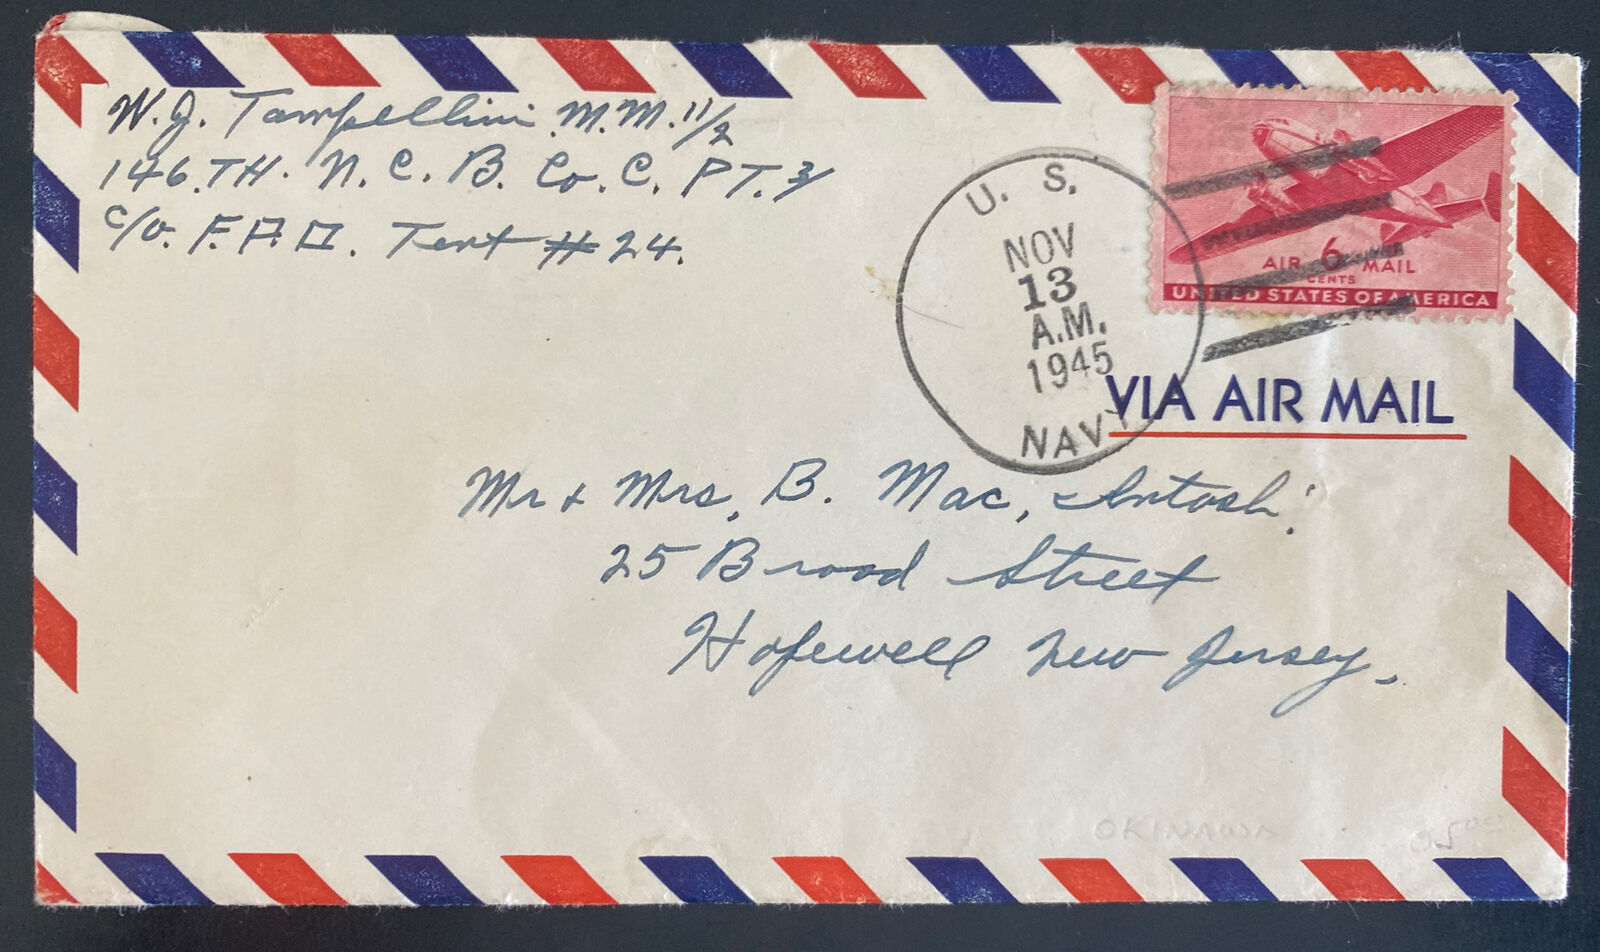 W. J. Tampellini M.M. 11/2
146.TH. N. C. B. Co. C. PT. 3/
c/o. F.P.O. Tent # 24.
U. S.
NOV
13
A.M.
1945
NAVY
AIR 6 MAIL
CENTS
UNITED STATES OF AMERICA
VIA AIR MAIL
Mr & Mrs. B. Mac, Intosh.
25 Broad Street
Hopewell New Jersey.
OKINAWA